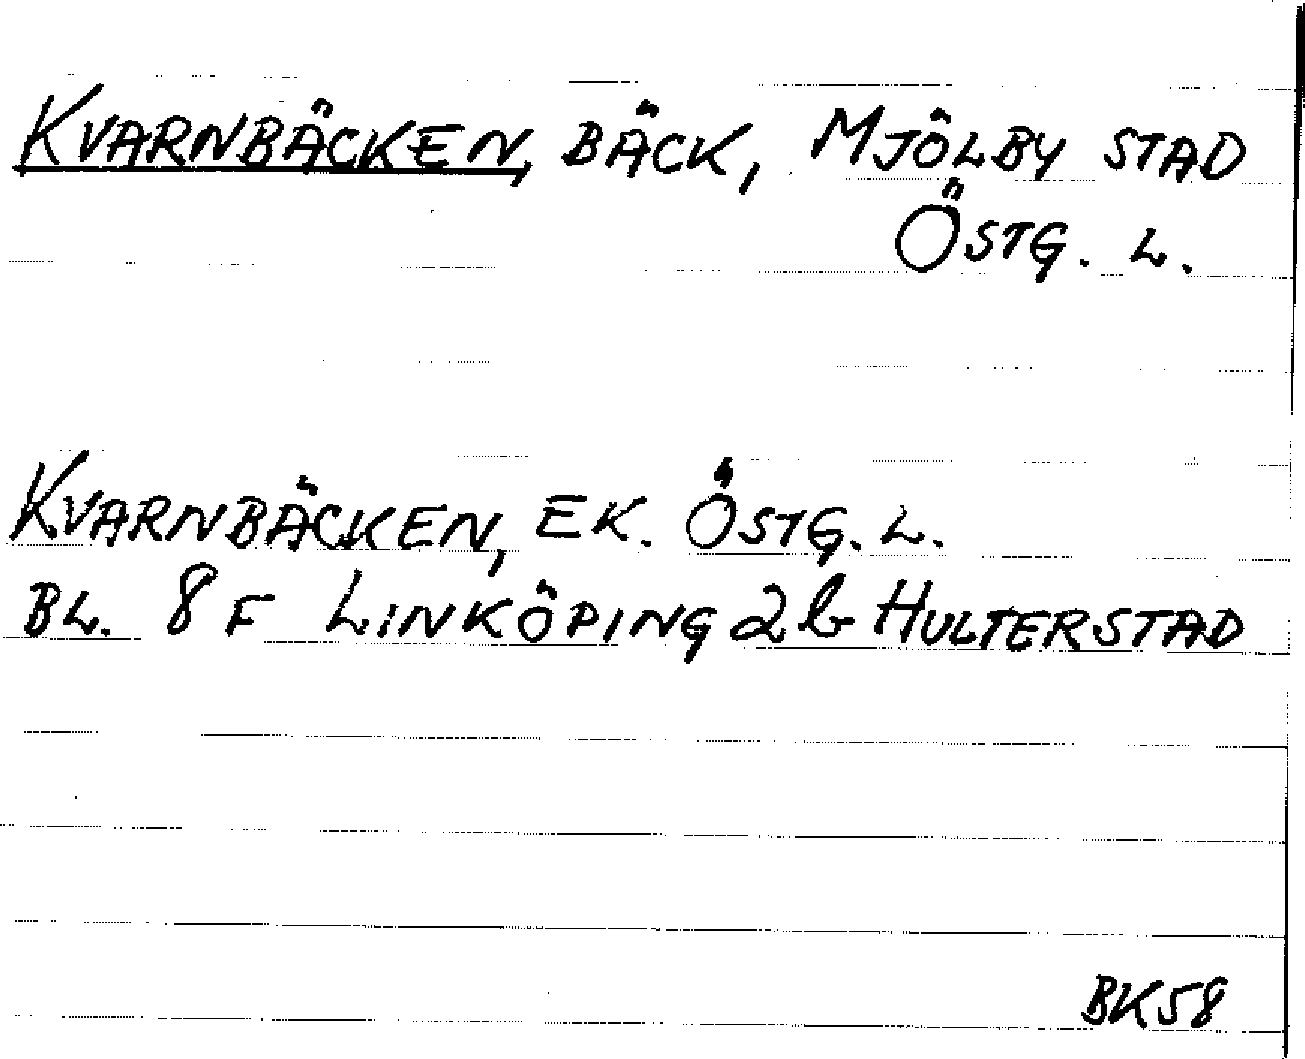 KVARNBÄCKEN, BÄCK, MJÖLBY STAD
ÖSTG. L.
KVARNBÄCKEN, EK. ÖSTG. L.
BL. 8 F LINKÖPING 2 b HULTERSTAD
BK58